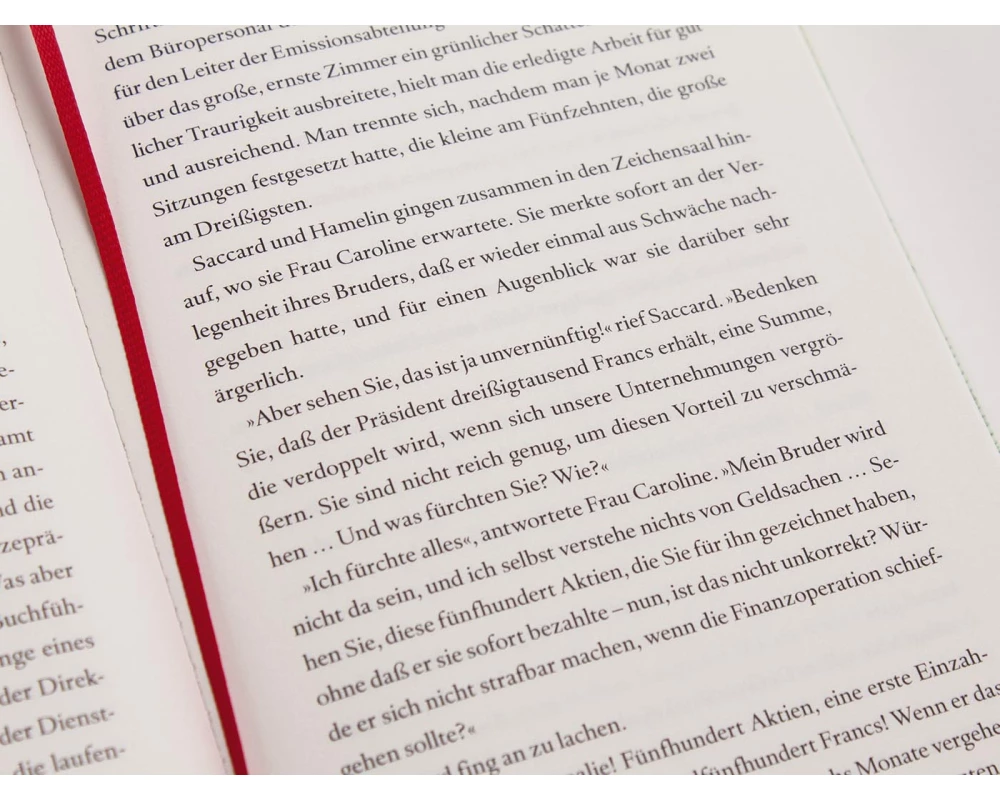 e-
er-
amt
n an-
nd die
zeprä-
Was aber
Buchfüh-
nge eines
der Direk-
der Dienst-
die laufen-
dem Büropersonal
für den Leiter der Emissionsabteilung
über das große, ernste Zimmer ein grünlicher
licher Traurigkeit ausbreitete, hielt man die erledigte Arbeit für gut
und ausreichend. Man trennte sich, nachdem man je Monat zwei
Sitzungen festgesetzt hatte, die kleine am Fünfzehnten, die große
am Dreißigsten.
Saccard und Hamelin gingen zusammen in den Zeichensaal hin-
auf, wo sie Frau Caroline erwartete. Sie merkte sofort an der Ver-
legenheit ihres Bruders, daß er wieder einmal aus Schwäche nach-
gegeben hatte, und für einen Augenblick war sie darüber sehr
ärgerlich.
»Aber sehen Sie, das ist ja unvernünftig!« rief Saccard. »Bedenken
Sie, daß der Präsident dreißigtausend Francs erhält, eine Summe,
die verdoppelt wird, wenn sich unsere Unternehmungen vergrö-
ßern. Sie sind nicht reich genug, um diesen Vorteil zu verschmä-
hen … Und was fürchten Sie? Wie?«
»Ich fürchte alles«, antwortete Frau Caroline. »Mein Bruder wird
nicht da sein, und ich selbst verstehe nichts von Geldsachen … Se-
hen Sie, diese fünfhundert Aktien, die Sie für ihn gezeichnet haben,
ohne daß er sie sofort bezahlte – nun, ist das nicht unkorrekt? Wür-
de er sich nicht strafbar machen, wenn die Finanzoperation schief-
gehen sollte?«
fing an zu lachen.
Fünfhundert Aktien, eine erste Einzah-
Francs! Wenn er das
Monate